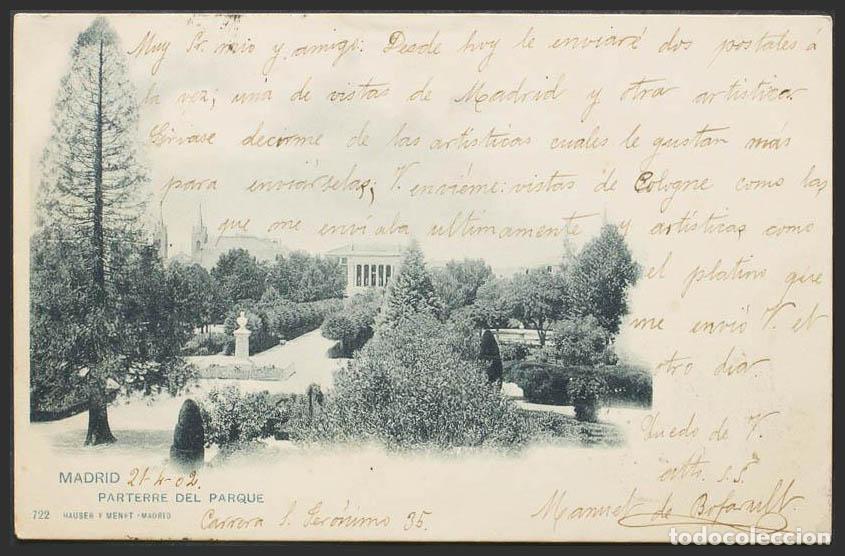 Muy Sr. mio y amigo: Desde hoy le enviaré dos postales á
la vez; una de vistas de Madrid y otra artistica.
Sirvase decirme de las artísticas cuales le gustan más
para enviárselas; V. envieme: vistas de Cologne como las
que me enviaba ultimamente y artísticas como
el platino que
me envió V. el
otro dia.
Quedo de V.
atto. s.s.
Manuel de Bofarull
MADRID 21-4-02.
PARTERRE DEL PARQUE
722 HAUSER Y MENET.-MADRID
Carrera S. Gerónimo 35.
todocoleccion